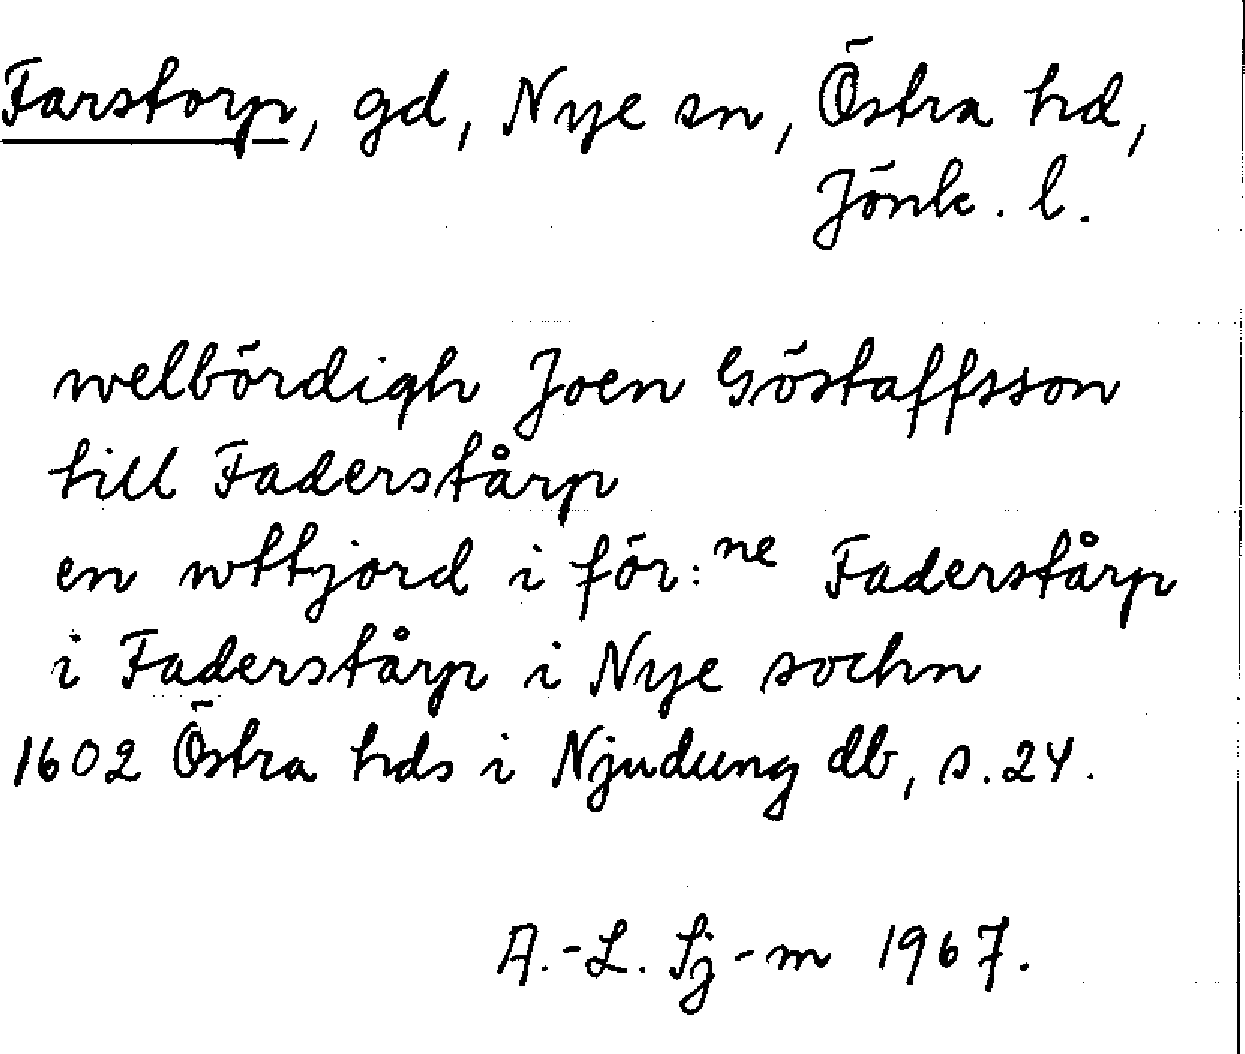 Farstorp, gd, Nye sn, Östra hd,
Jönk. l.
welbördigh Joen Göstaffsson
till Faderstårp
en wttjord i för:ne Faderstårp
i Faderstårp i Nye sochn
1602 Östra hds i Njudung db, s. 24.
A.-L. Sj-m 1967.